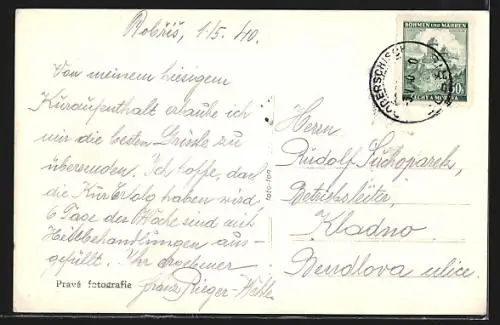 1./5. 40.
Von meinem hiesigem
Kuraufenthalt erlaube ich
mir die besten Grüsse zu
übersenden. Ich hoffe, dass
die Kur Erfolg haben wird,
6 Tage der Woche sind mit
Heilbehandlungen aus-
gefüllt. Ihr ergebener
Franz Rieger
Pravá fotografie
foto-fon
BÖHMEN UND MÄHREN
Herrn
Rudolf Suchoparek,
Betriebsleiter,
Kladno
Bendlova ulice.